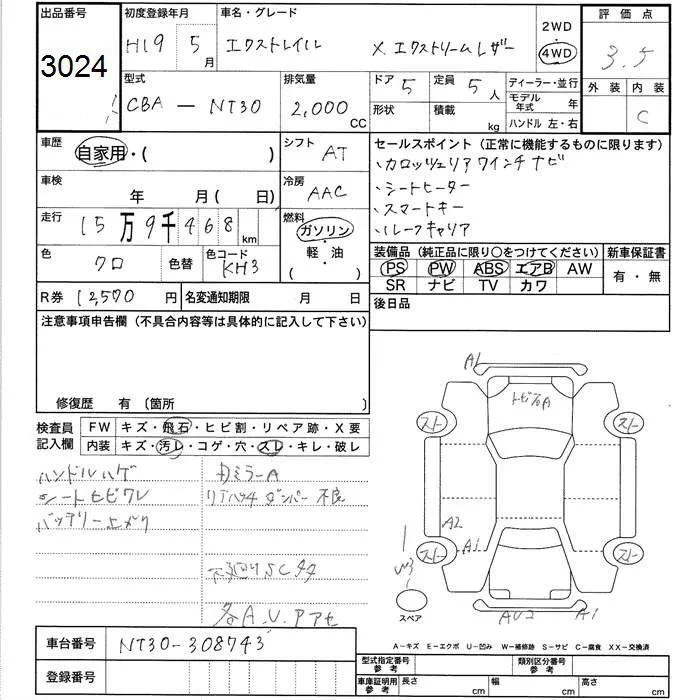 出品番号 初度登録年月 車名・グレード 2WD 評価点
3024 H19 5月 エクストレイル X.エクストリームレザー 4WD 3.5
型式 排気量 ドア 5 定員 5人 ディーラー・並行 外装 内装
CBA - NT30 2,000 CC 形状 積載 kg モデル年式 年 C
ハンドル 左・右
車歴 自家用・( ) シフト AT セールスポイント(正常に機能するものに限ります)
・カロッツェリア7インチナビ
車検 年 月( 日) 冷房 AAC ・シートヒーター
・スマートキー
走行 15万9千468km 燃料 ガソリン・軽油 ・( ) ・ルーフキャリア
色 クロ 色替 色コード KH3 装備品(純正品に限り○をつけてください) 新車保証書
PS PW ABS エアB AW 有・無
SR ナビ TV カワ
R券 12,570円 名変通知期限 月 日 後日品
注意事項申告欄(不具合内容等は具体的に記入して下さい)
修復歴 有(箇所 )
検査員記入欄 FW キズ・飛石・ヒビ割・リペア跡・X要
内装 キズ・汚レ・コゲ・穴・スレ・キレ・破レ
ハンドルハゲ ミラーA
シートヒビワレ リアハッチダンパー不良
バッテリー上ガリ
下回りSCサタ
各A.U.アアセ
A1
トビ石A
スト スト
A2 A1
スト スト
W3
スペア
AU2 A1
A-キズ E-エクボ U-凹み W-補修跡 S-サビ C-腐食 XX-交換済
車台番号 NT30-308743
登録番号
型式指定番号参考 類別区分番号参考
車庫証明用参考 長さ cm 幅 cm 高さ cm